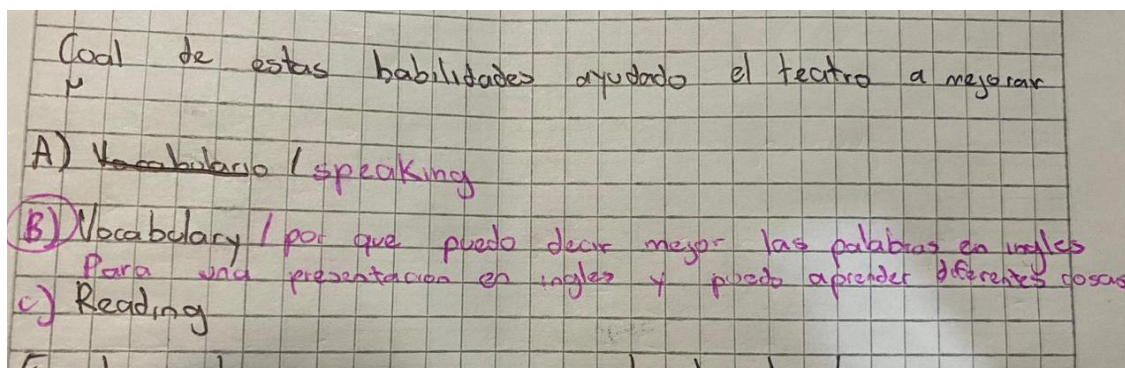 Coal de estas babilidades ayudado el teatro a mejorar
μ
A) Vocabulario / speaking
B) Vocabulary / por que puedo decir mejor las palabras en ingles
Para una presentacion en ingles y puedo aprender diferentes cosas
C) Reading